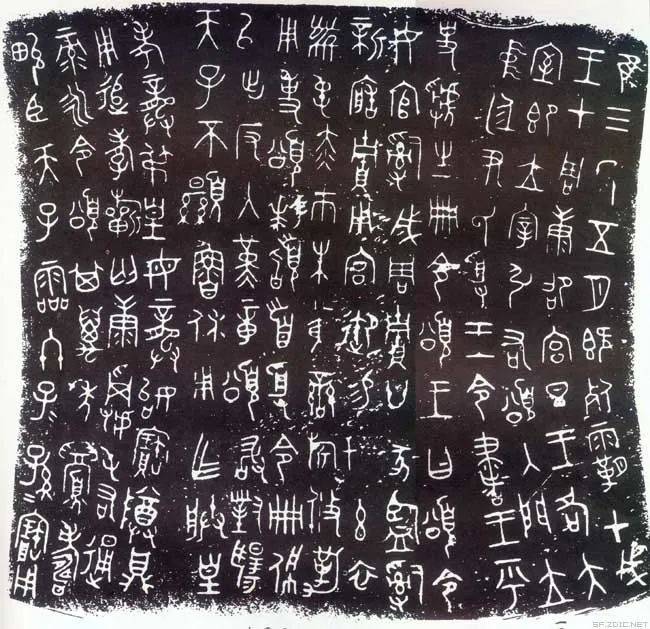 隹三年五月既死霸甲戌
王才周康卲宮旦王各大
室即立宰引右頌入門立
中廷尹氏受王令書王乎
史虢生冊令頌王曰頌令
女官𤔲成周貯廿家監𤔲
新造貯用宮御易女玄衣
黹屯赤巿朱黃䜌旂攸勒
用事頌拜𩒨首受令冊佩
以出反入堇章頌敢對揚
天子不顯魯休用乍朕皇
考龏弔皇母龏始寶尊鼎
用追孝匄康屯右通
彔永令頌其萬年眉壽
畯臣天子霝冬子孫寶用
SF.ZDIC.NET